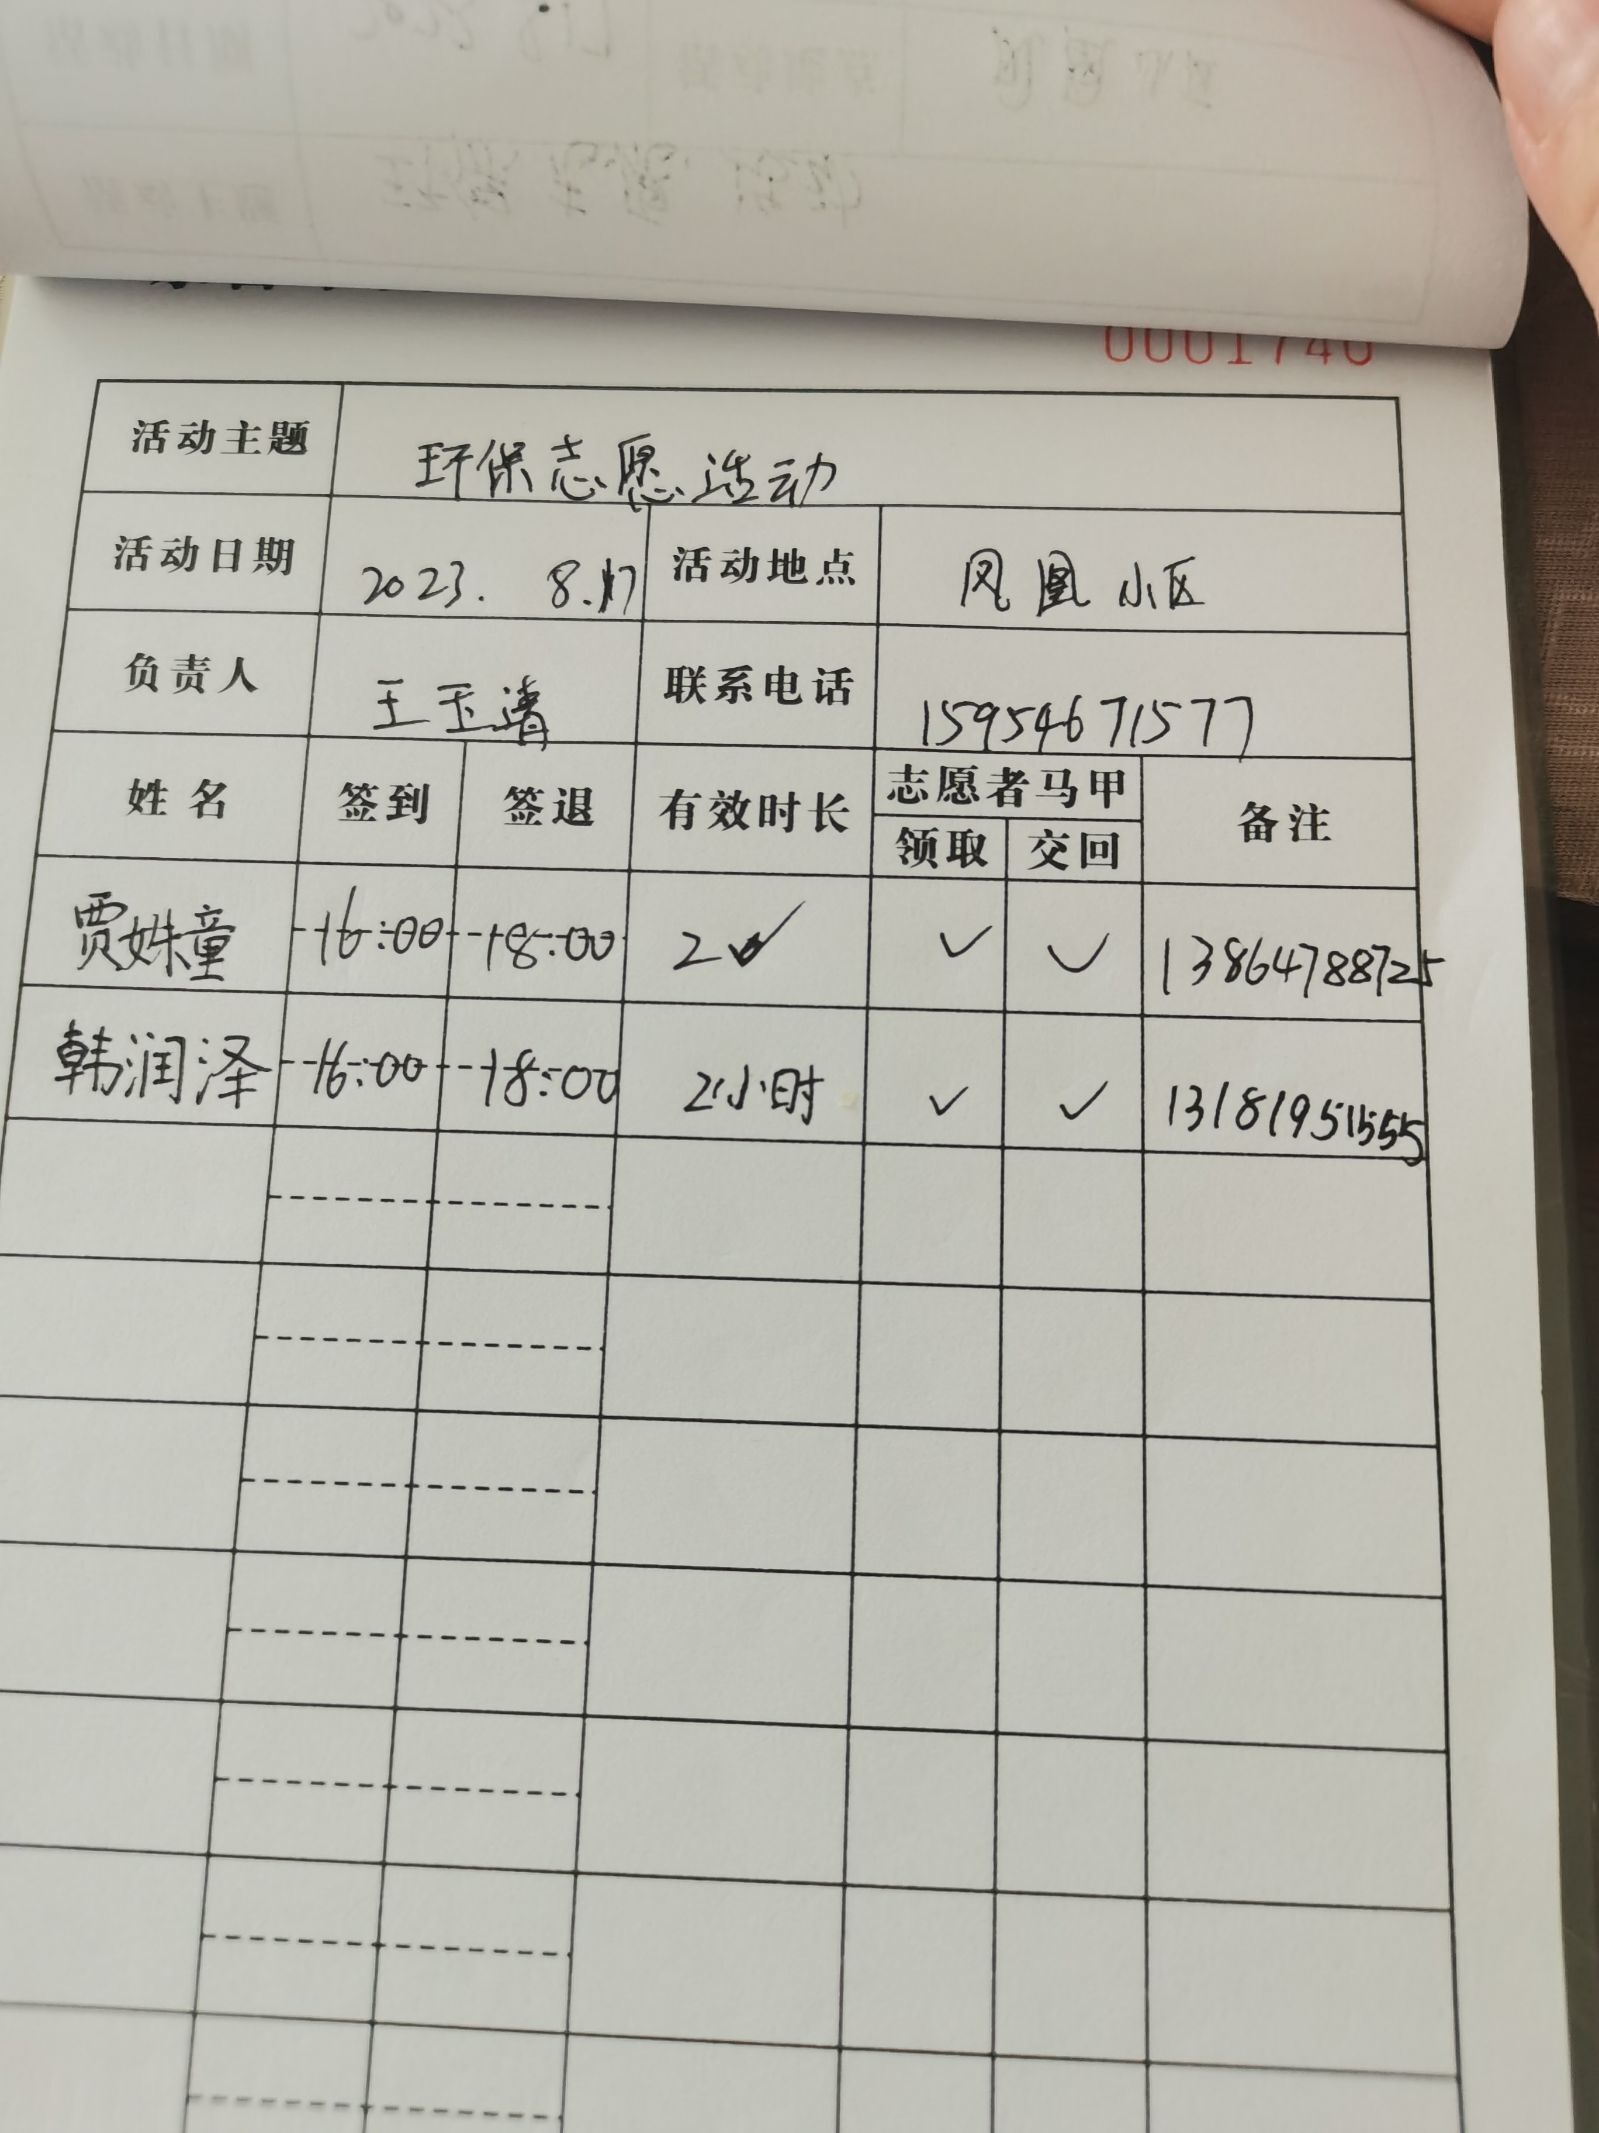 0001740
活动主题 环保志愿活动
活动日期 2023. 8.17 活动地点 凤凰小区
负责人 王玉清 联系电话 15954671577
姓名 签到 签退 有效时长 志愿者马甲 备注
领取 交回
贾姝童 16:00 18:00 2 ✓ ✓ ✓ 13864788725
韩润泽 16:00 18:00 2小时 ✓ ✓ 13181951555